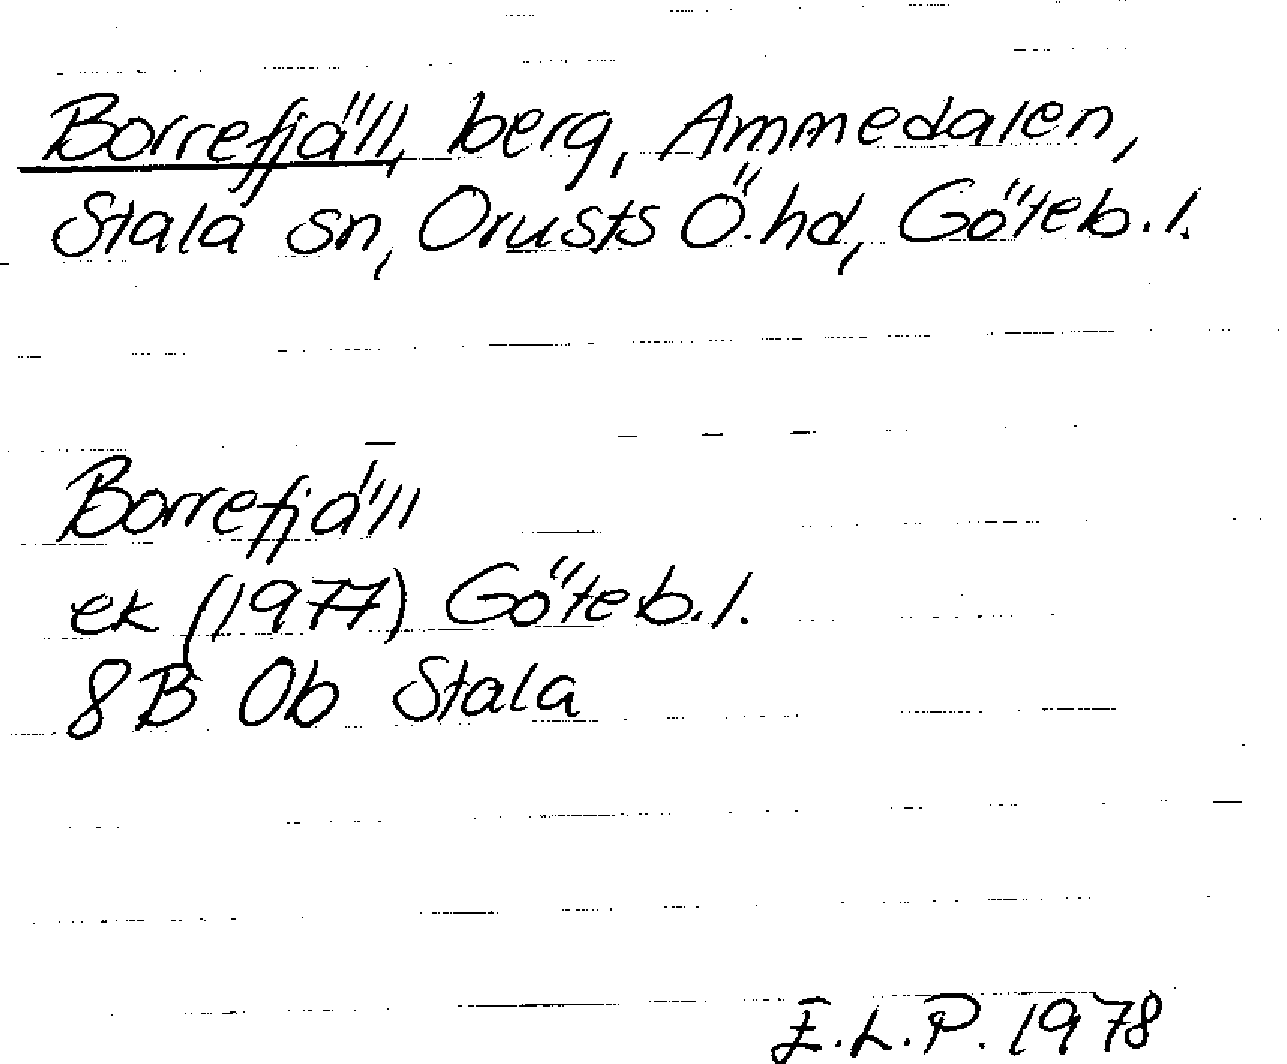 Borrefjäll, berg, Ammedalen,
Stala sn, Orusts Ö. hd, Göteb. l.
Borrefjäll
ek (1977) Göteb. l.
8B 0b Stala
E.L.P. 1978